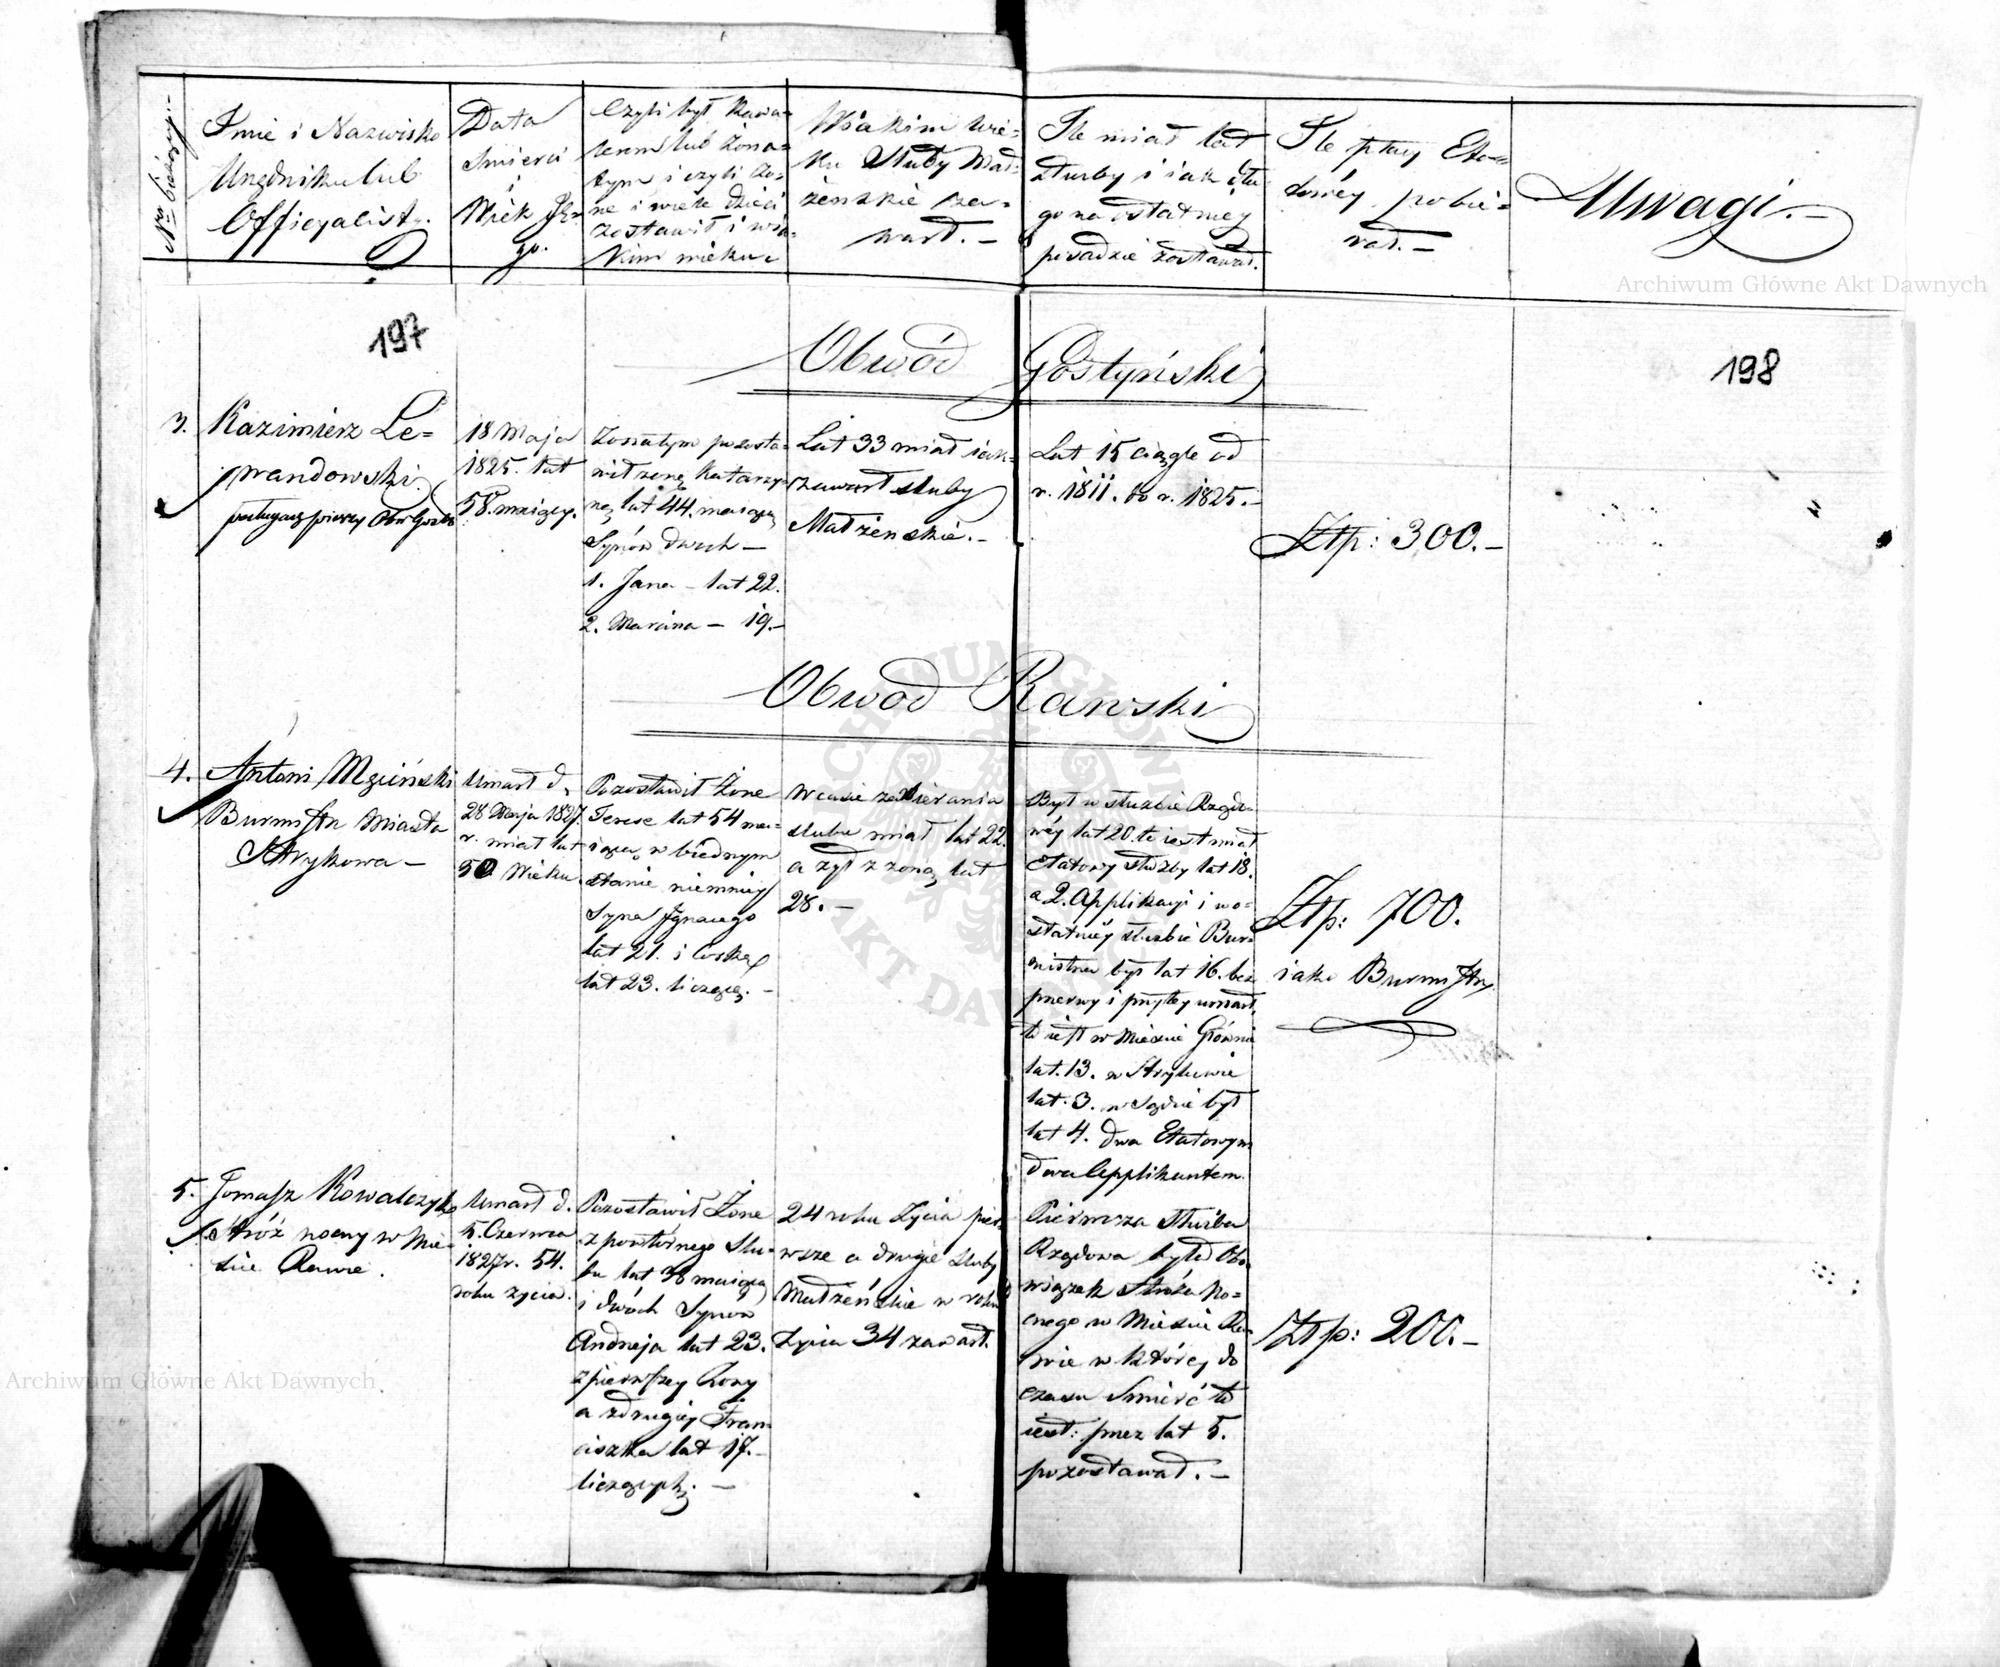 Nro bieżący.
Imie i Nazwisko
Urzędnika lub
Officyalisty.
Data
Smierci
i
Wiek Je=
go.
Czyli był Kawa=
lerem lub Żona=
tym i czyli Żo=
ne i wiele dzieci
zostawił i wia=
kim wieku.
W iakim wie=
ku Sluby Mał=
żenskie za=
warł. —
Ile miał lat
służby i iak dłu
go na ostatniey
posadzie zostawał.
Ile płacy Eta=
towéy pobie=
rał. —
Uwagi. —
197
198
Obwód Gostyński
3. Kazimierz Le=
wandowski
Obw Gostń
18 Maja
1825. lat
58. maiący.
Żonatym pozosta=
wił żonę Katarzy
nę lat 44. maiącą
Synów dwuch —
1. Jana — lat 22.
2. Marcina — 19. —
Lat 33 miał iak
zawarł sluby
Małżenskie. —
Lat 15 ciągle od
r. 1811. do r. 1825. —
Ztp: 300. —
Obwod Rawski
4. Antoni
Burmistrz Miasta
Strykowa —
Umarł d.
28 Maja 1827.
r. miał lat
50 Wieku.
Pozostawił Żone
Terese lat 54 ma=
iącą w biednym
stanie niemniey
Syna Ignacego
lat 21. i Corkę
lat 23. liczącą. —
W czasie zabierania
slubu miał lat 22.
a żył z żoną lat
28. —
Był w służbie Rządo=
wéy lat 20. to iest miał
etatowy służby lat 18.
a 2. Applikacyi i wo=
statniéy służbie Bur=
mistrza był lat 16. bez
przerwy i przytey umarł,
to iest w Miescie Główni
lat. 13. w Strykowie
lat. 3. w Sądzie był
lat 4. dwa Etatowym
dwa Applikantem.
Ztp: 700.
iako Burmistrz.
5. Tomasz Kowalczyk
Stróż nocny w Mie=
scie Rawie.
Umarł d.
5. Czerwca
1827 r. 54.
roku życia.
Pozostawił Żone
z powtórnego Slu=
bu lat 38 maiącą
i dwóch Synow
Andrzeja lat 23.
z pierwszey Żony
a z drugiéy Fran
ciszka lat 17. —
liczących. —
24 roku Życia pier=
wsze a drugie Sluby
Małżeńskie w roku
Życia 34 zawarł.
Pierwsza Służba
Rządowa był Obo
wiązek Stróża No=
cnego w Miescie Ra=
wie w któréy do
czasu Smierć to
iest: przez lat 5.
pozostawał. —
Ztp: 200. —
Archiwum Główne Akt Dawnych
Archiwum Główne Akt Dawnych
ARCHIWUM GŁÓWNE
AKT DAWNYCH